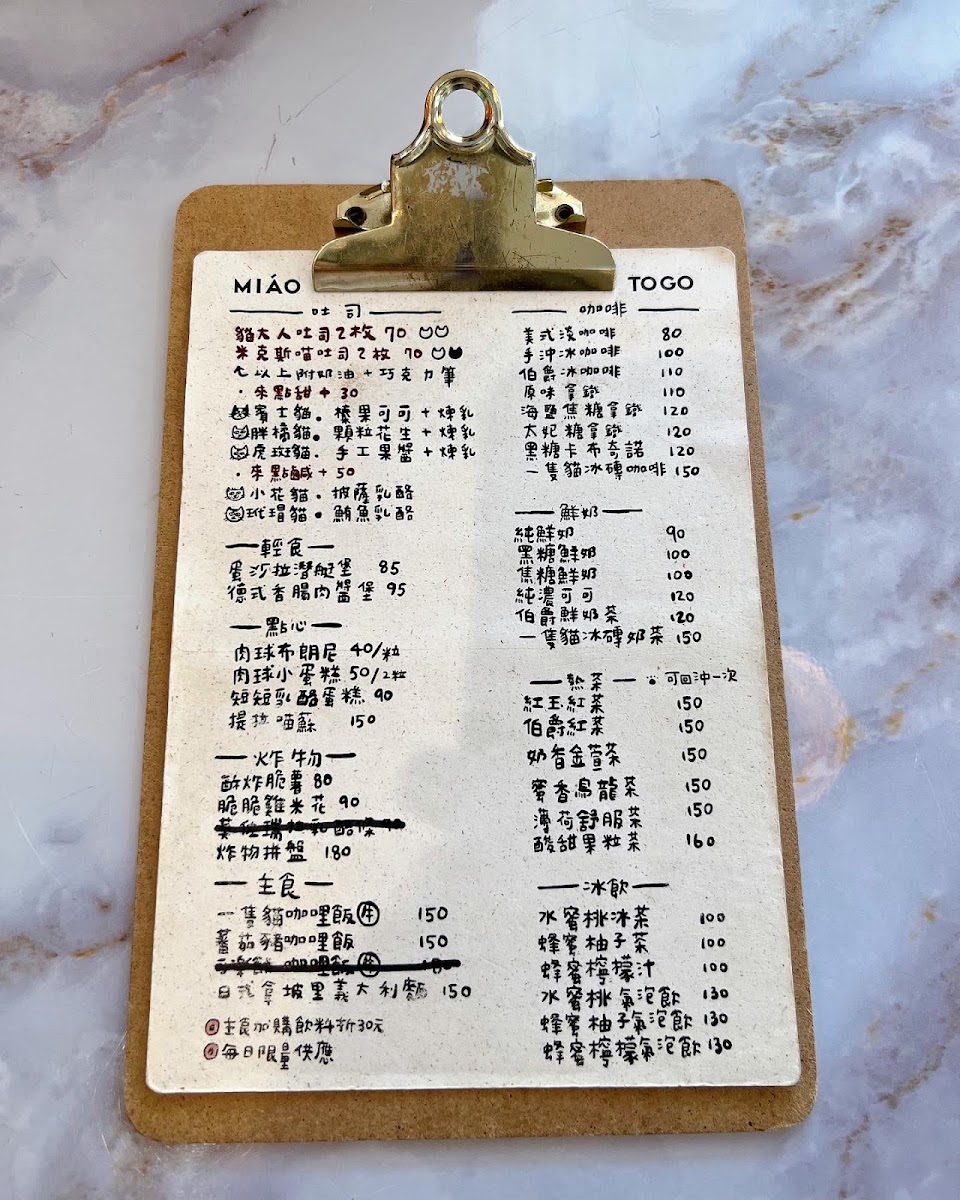 MIÁO
吐司
貓大人吐司2枚 70
米克斯喵吐司2枚 70
以上附奶油+巧克力筆
·來點甜+30
賓士貓。榛果可可+煉乳
胖橘貓。顆粒花生+煉乳
虎斑貓。手工果醬+煉乳
·來點鹹+50
小花貓。披薩乳酪
玳瑁貓。鮪魚乳酪
輕食
蛋沙拉潛艇堡 85
德式香腸肉醬堡 95
點心
肉球布朗尼 40/粒
肉球小蛋糕 50/2粒
短短乳酪蛋糕 90
提拉喵蘇 150
炸物
酥炸脆薯 80
脆脆雞米花 90
炸物拼盤 180
主食
一隻貓咖哩飯牛 150
蕃茄豬咖哩飯 150
咖哩飯
日式拿坡里義大利麵 150
主食加購飲料折30元
每日限量供應
TOGO
咖啡
美式淺咖啡 80
手沖冰咖啡 100
伯爵冰咖啡 110
原味拿鐵 110
海鹽焦糖拿鐵 120
太妃糖拿鐵 120
黑糖卡布奇諾 120
一隻貓冰磚咖啡 150
鮮奶
純鮮奶 90
黑糖鮮奶 100
焦糖鮮奶 100
純濃可可 120
伯爵鮮奶茶 120
一隻貓冰磚奶茶 150
熱茶 可回沖一次
紅玉紅茶 150
伯爵紅茶 150
奶香金萱茶 150
蜜香烏龍茶 150
薄荷舒服茶 150
酸甜果粒茶 160
冰飲
水蜜桃冰茶 100
蜂蜜柚子茶 100
蜂蜜檸檬汁 100
水蜜桃氣泡飲 130
蜂蜜柚子氣泡飲 130
蜂蜜檸檬氣泡飲 130